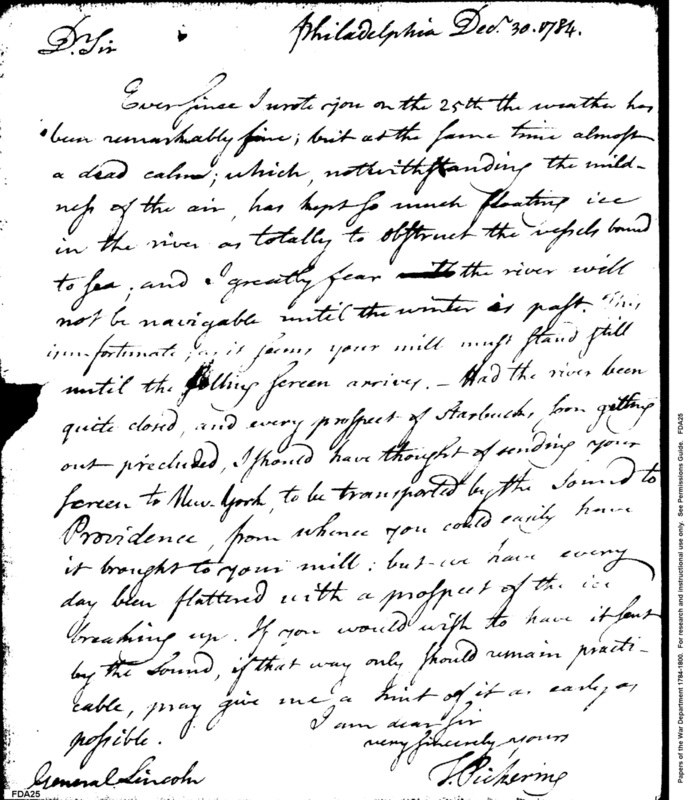 Philadelphia Decr. 30. 1784.
Dr. Sir
Ever since I wrote you on the 25th the weather has
been remarkably fine; but at the same time almost
a dead calm; which, notwithstanding the mild-
ness of the air, has kept so much floating ice
in the river as totally to obstruct the vessels bound
to sea; and I greatly fear the river will
not be navigable until the winter is past. This
is unfortunate; as it seems your mill must stand still
until the screen arrives. - Had the river been
quite closed, and every prospect of Starbuck's soon getting
out precluded, I should have thought of sending your
screen to New York, to be transported by the Sound to
Providence, from whence you could easily have
it brought to your mill: but we have every
day been flattered with a prospect of the ice
breaking up. If you would wish to have it sent
by the Sound, if that way only should remain practi-
cable, pray give me a hint of it as early as
possible.
I am dear sir
very sincerely yours
T. Pickering
General Lincoln
FDA25
Papers of the War Department 1784-1800. For research and instructional use only. See Permissions Guide. FDA25